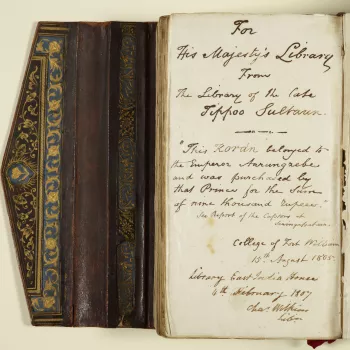 For
His Majesty's Library
From
The Library of the Late
Tippoo Sultaun.
"This Korân belonged to
the Emperor Aurungzebe
and was purchased by
that Prince for the Sum
of nine thousand Rupees."
See Report of the Captors at
Seringapatam.
College of Fort William
13th August 1805.
Library East India House
4th February 1807
Chas Wilkins